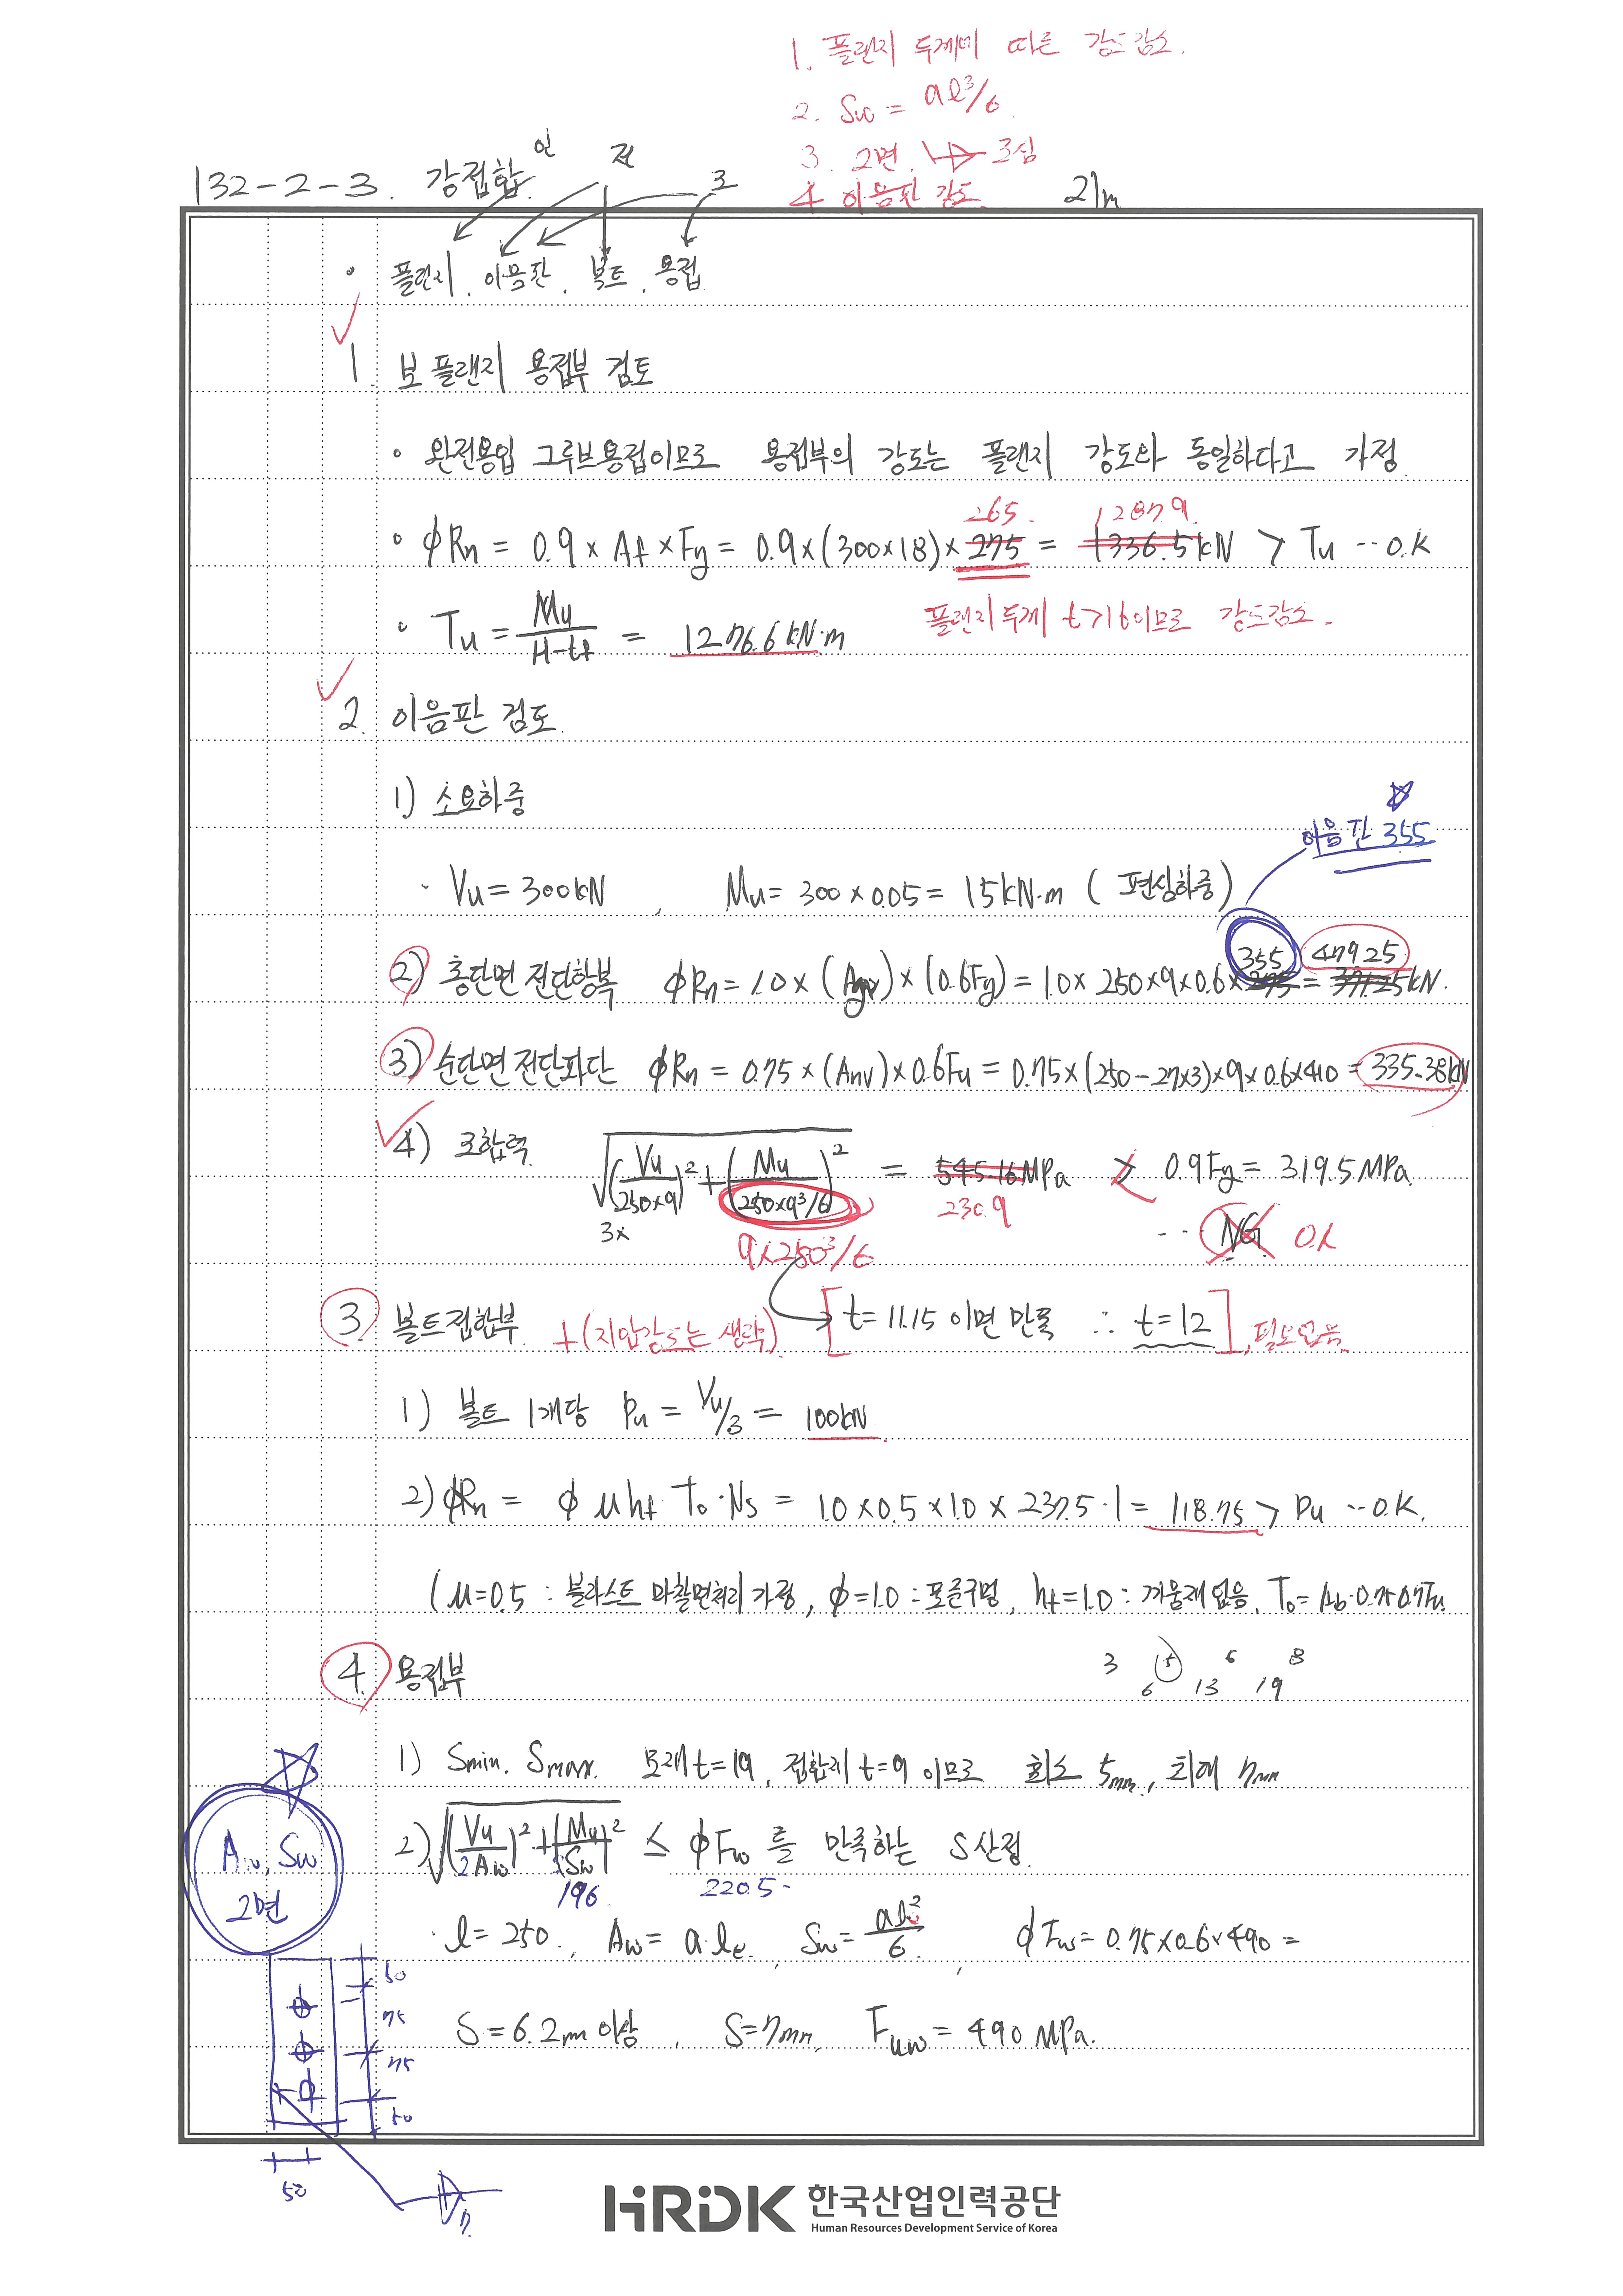 1. 플랜지 두께에 따른 강도감소.
2. Sw = al³/6
3. 2면. 조심
4 이음판 강도.
132-2-3. 강접합. 21m
인 전 조
• 플랜지, 이음판, 볼트, 용접
1. 보 플랜지 용접부 검토
• 완전용입 그루브용접이므로 용접부의 강도는 플랜지 강도와 동일하다고 가정.
265. 1287.9
• ϕRn = 0.9 × Af × Fy = 0.9 × (300×18) × 275 = 1336.5kN > Tu -- O.K
플랜지 두께 t>16이므로 강도감소.
• Tu = Mu/(H-tf) = 1276.6 kN·m
2. 이음판 검토.
1) 소요하중
이음판 355
· Vu = 300kN , Mu = 300 × 0.05 = 15kN·m ( 편심하중 )
355 479.25
2) 총단면 전단항복 ϕRn = 1.0 × (Agv) × (0.6Fy) = 1.0 × 250×9×0.6×275 = 371.25kN.
3) 순단면 전단파단 ϕRn = 0.75 × (Anv) × 0.6Fu = 0.75×(250-27×3)×9×0.6×410 = 335.38kN
4) 조합력 √((Vu/250×9)² + (Mu/(250×9³/6))²) = 545.16MPa > 0.9Fy = 319.5MPa.
3× 230.9
--- NG. O.K
9×250³/6
3. 볼트접합부 + (지압강도는 생략) [ t = 11.15 이면 만족 ∴ t = 12 ], 필요없음.
1) 볼트 1개당 Pu = Vu/3 = 100kN
2) ϕRn = ϕ μ hf To·Ns = 1.0 × 0.5 × 1.0 × 237.5 · 1 = 118.75 > Pu -- O.K.
( μ=0.5 : 블라스트 마찰면처리 가정, ϕ=1.0 : 표준구멍, hf=1.0 : 끼움재 없음, To = Ab·0.75·0.7Fu.
4. 용접부
3 5 6 8
6 13 19
1) Smin. Smax. 모재 t=19, 접합재 t=9 이므로 최소 5mm, 최대 7mm
2) √((Vu/2Aw)² + (Mu/Sw)²) ≤ ϕFw 를 만족하는 S 산정.
196 220.5
Aw, Sw
2면
· l = 250. , Aw = a·le , Sw = al²/6 , ϕFw = 0.75×0.6×490 =
S = 6.2m 이상 , S=7mm, Fuw = 490 MPa.
50
75
75
50
50
7.
HRDK 한국산업인력공단
Human Resources Development Service of Korea